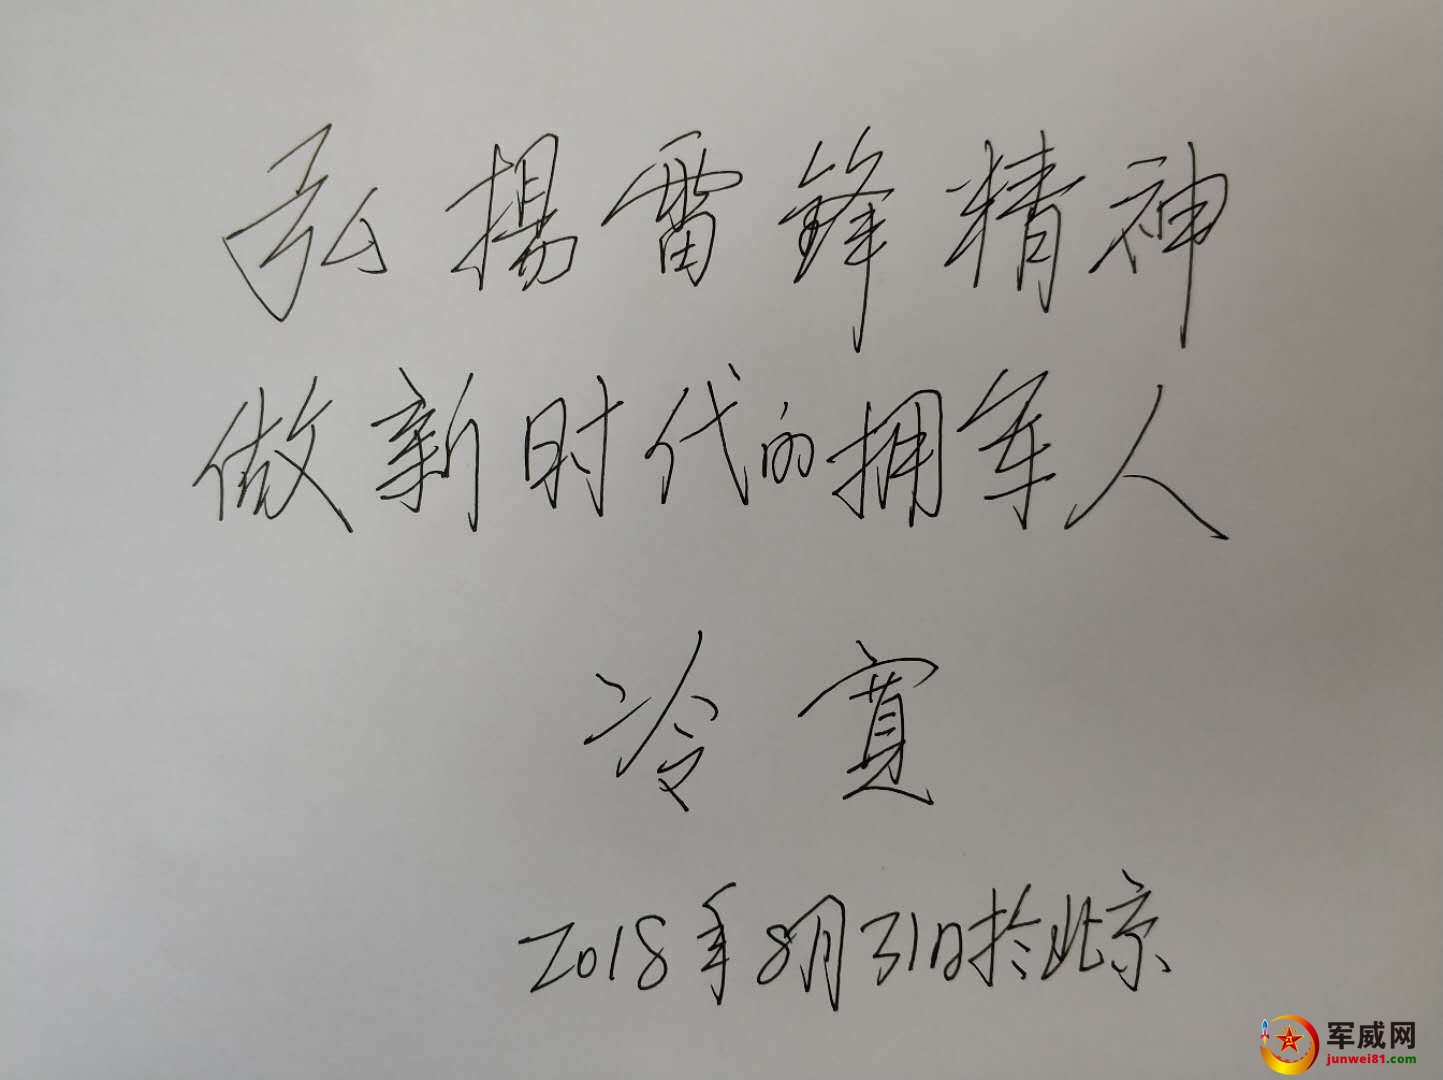 弘揚雷锋精神
做新时代的拥军人
冷寛
2018年8月31日於北京
军威网
junwei81.com